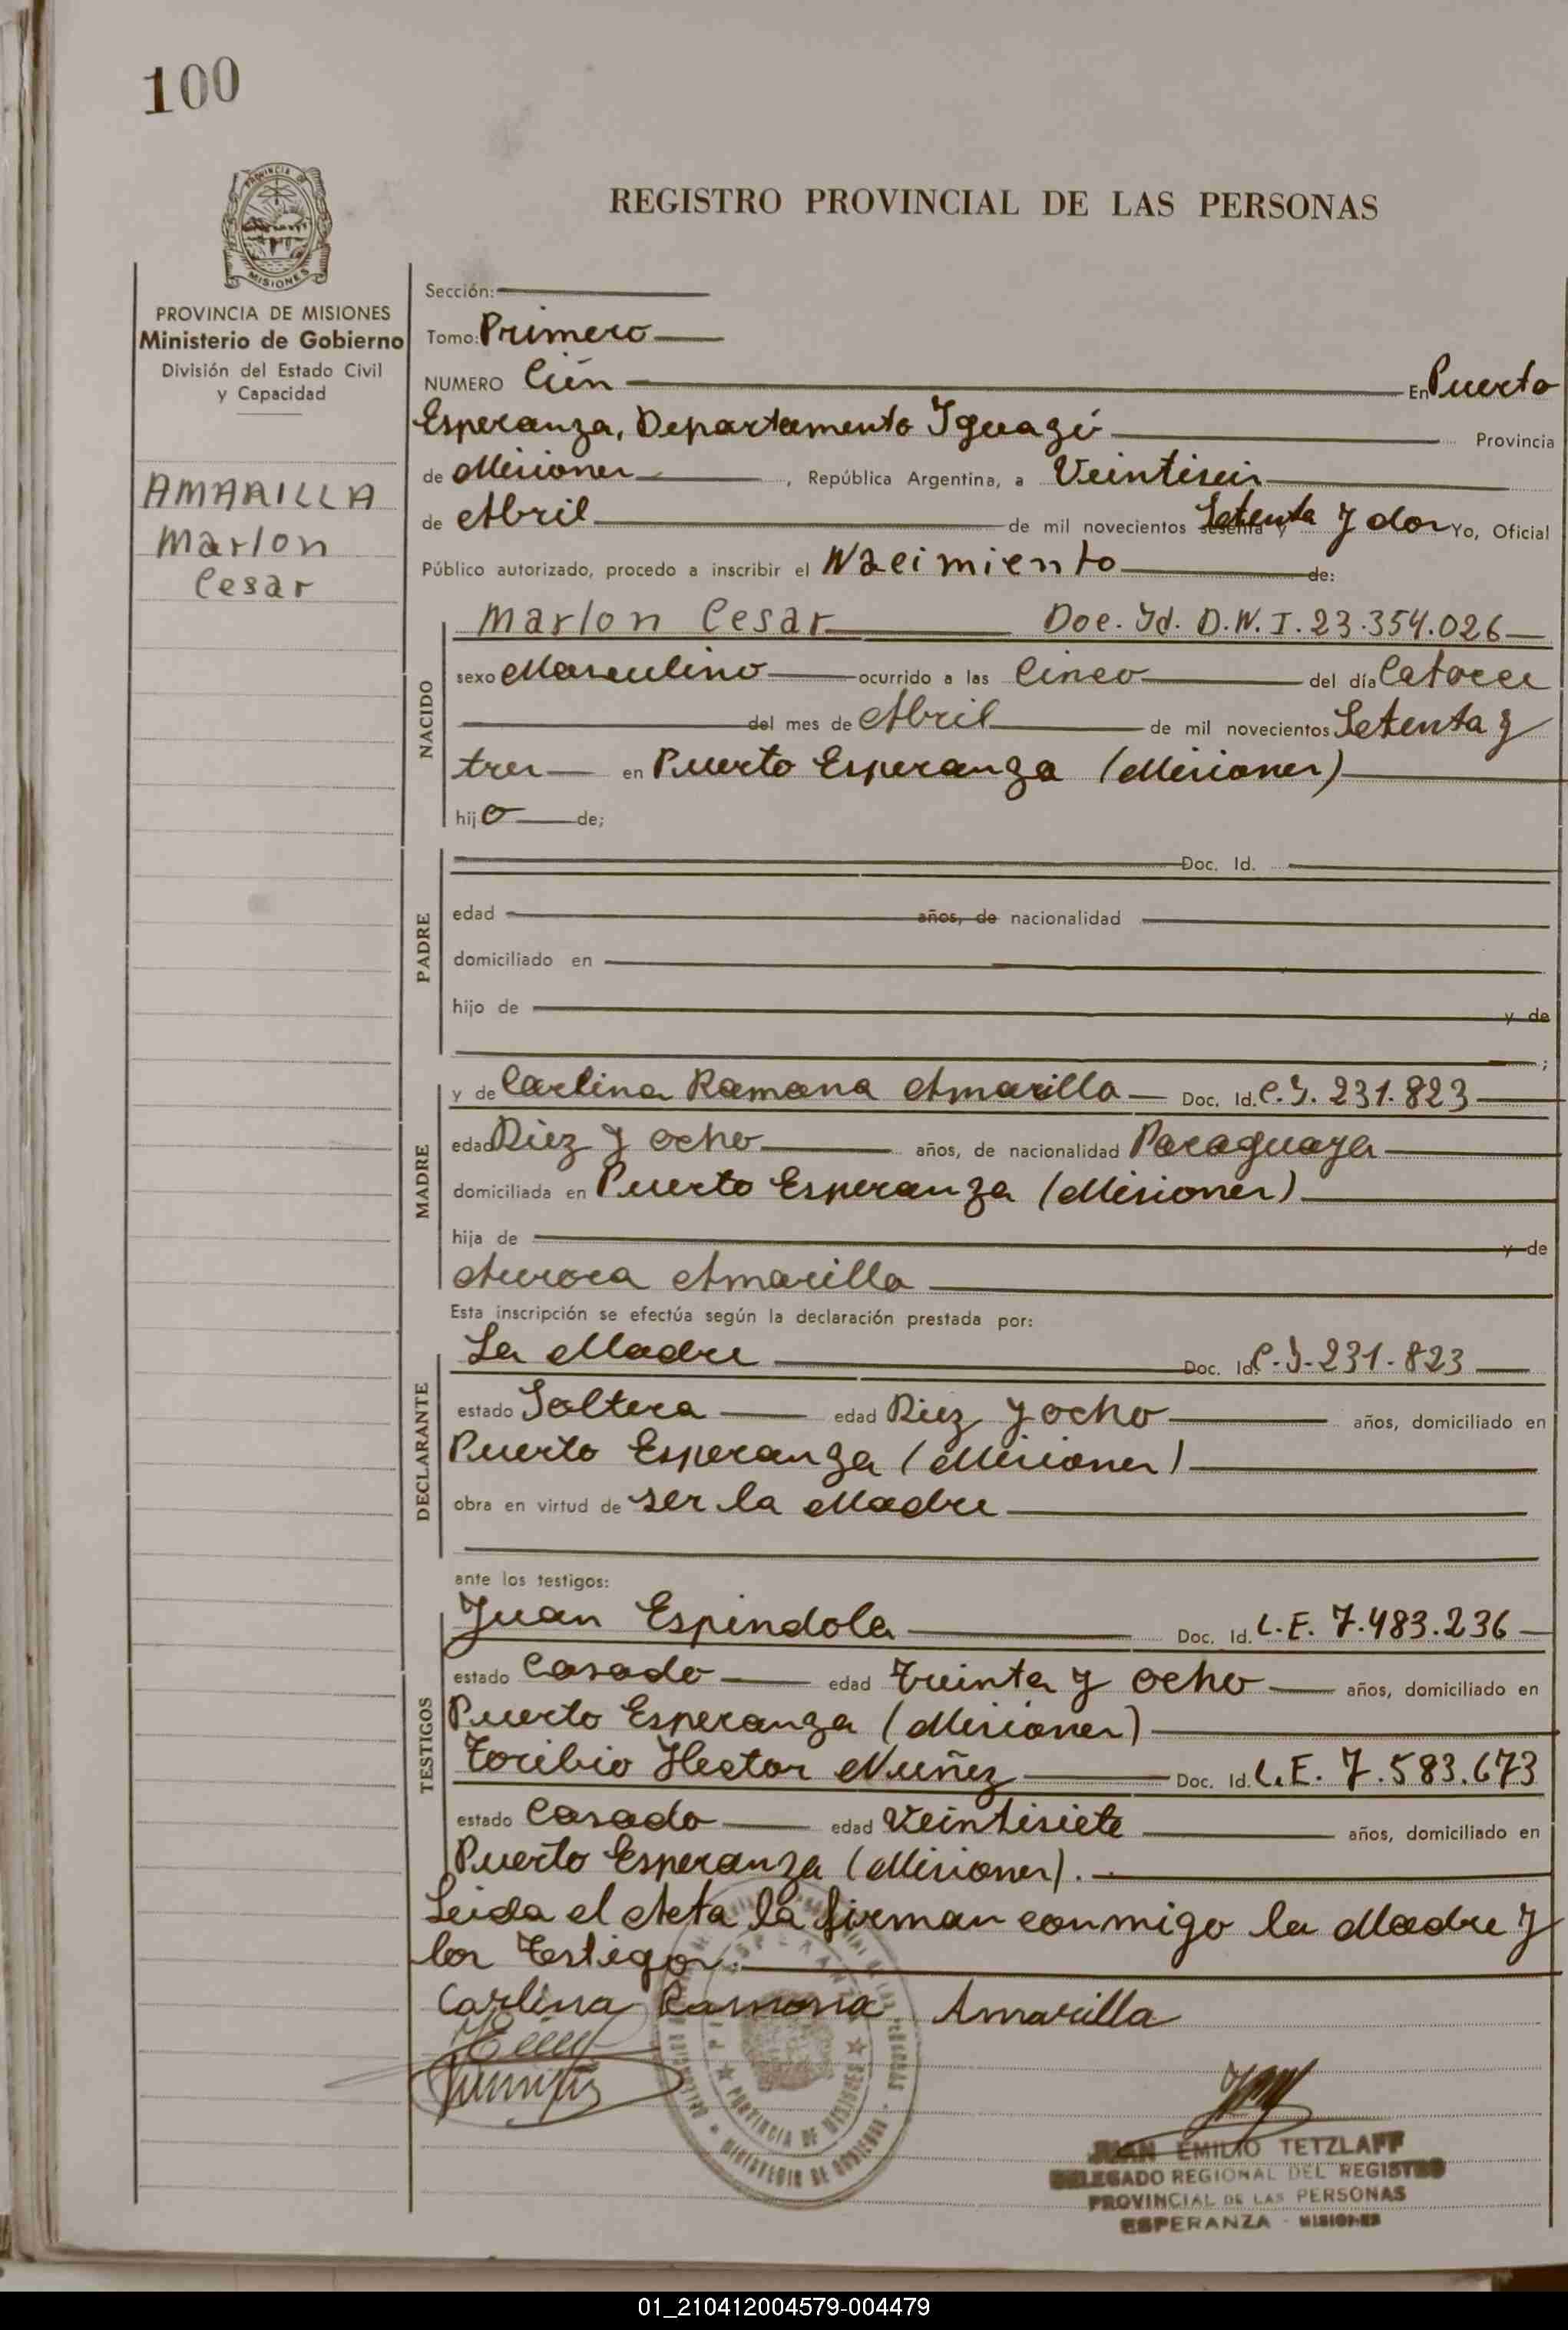 100
PROVINCIA DE
MISIONES
REGISTRO PROVINCIAL DE LAS PERSONAS
PROVINCIA DE MISIONES
Ministerio de Gobierno
División del Estado Civil
y Capacidad
AMARILLA
Marlon
Cesar
Sección:
Tomo: Primero
NUMERO Cién En Puerto
Esperanza, Departamento Iguazú Provincia
de Misiones, República Argentina, a Veintiseis
de Abril de mil novecientos sesenta y Setenta y dos Yo, Oficial
Público autorizado, procedo a inscribir el Nacimiento de:
NACIDO
Marlon Cesar Doc. Id. D.N.I. 23.354.026
sexo Masculino ocurrido a las Cinco del día Catorce
del mes de Abril de mil novecientos Setenta y
tres en Puerto Esperanza (Misiones)
hijo de;
PADRE
Doc. Id.
edad años, de nacionalidad
domiciliado en
hijo de y de
;
MADRE
y de Carlina Ramona Amarilla Doc. Id. C.I. 231.823
edad Diez y ocho años, de nacionalidad Paraguaya
domiciliada en Puerto Esperanza (Misiones)
hija de y de
Aurora Amarilla
Esta inscripción se efectúa según la declaración prestada por:
DECLARANTE
La Madre Doc. Id. C.I. 231.823
estado Soltera edad Diez y ocho años, domiciliado en
Puerto Esperanza (Misiones)
obra en virtud de ser la Madre
ante los testigos:
TESTIGOS
Juan Espindola Doc. Id. L.E. 7.483.236
estado Casado edad Treinta y ocho años, domiciliado en
Puerto Esperanza (Misiones)
Toribio Hector Nuñez Doc. Id. L.E. 7.583.673
estado Casado edad Veintisiete años, domiciliado en
Puerto Esperanza (Misiones).
Leida el Acta la firman conmigo la Madre y
los Testigos.
Carlina Ramona Amarilla
PROVINCIA DE MISIONES
MINISTERIO DE GOBIERNO
JUAN EMILIO TETZLAFF
DELEGADO REGIONAL DEL REGISTRO
PROVINCIAL DE LAS PERSONAS
ESPERANZA - MISIONES
01_210412004579-004479